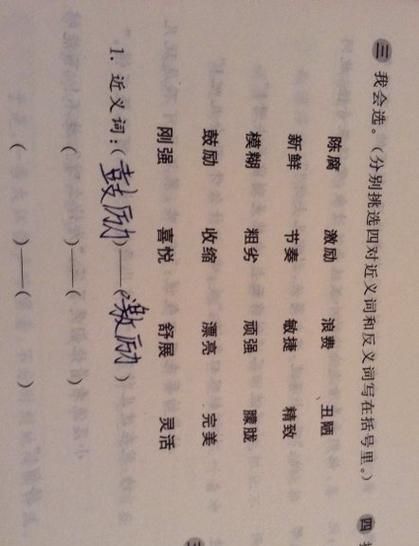 三 我会选。（分别挑选四对近义词和反义词写在括号里。）
陈腐 激励 浪费 丑陋
新鲜 节奏 敏捷 精致
模糊 粗劣 顽强 朦胧
鼓励 收缩 漂亮 完美
刚强 喜悦 舒展 灵活
1. 近义词：（鼓励）——（激励）
（ ）——（ ）
（ ）——（ ）
四